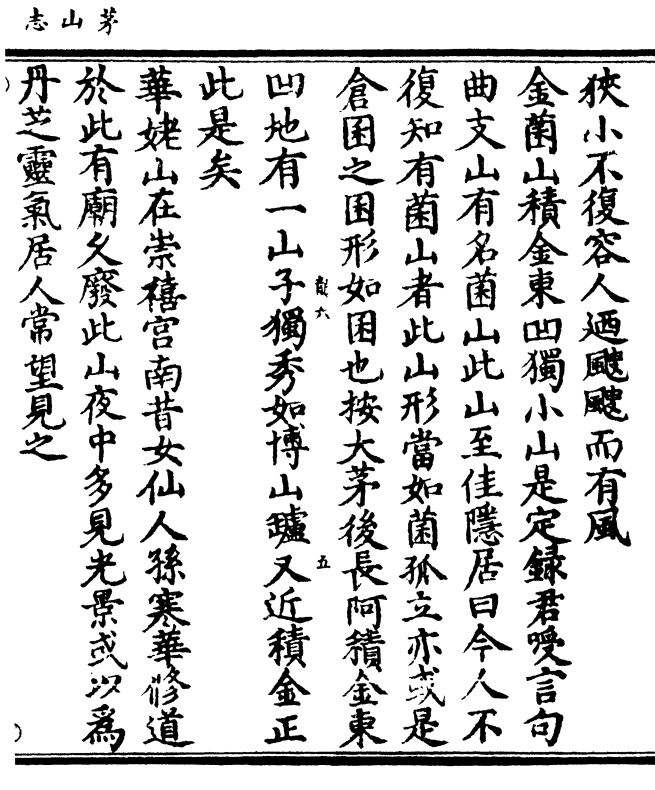 茅山志
狹小不復容人迺颼颼而有風
金菌山積金東凹獨小山是定録君言句
曲支山有名菌山此山至佳隱居曰今人不
復知有菌山者此山形當如菌孤立亦或是
倉囷之囷形如囷也按大茅後長阿積金東
六 五
凹地有一山子獨秀如博山鑪又近積金正
此是矣
華姥山在崇禧宮南昔女仙人孫寒華修道
於此有廟久廢此山夜中多見光景或以爲
丹芝靈氣居人常望見之